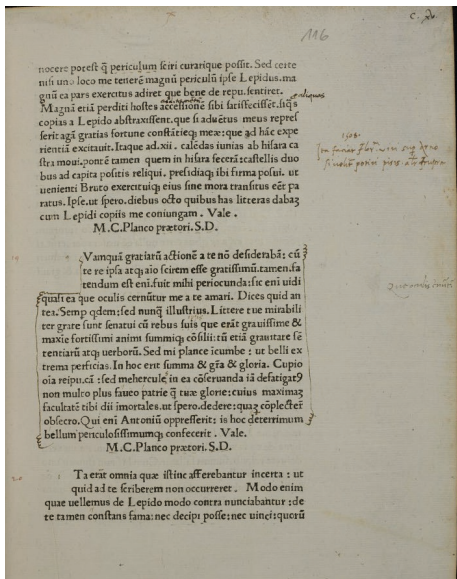 116
nocere potest q̃ periculum sciri curarique possit. Sed certe
nisi uno loco me tenerẽ magnũ periculũ ipse Lepidus.ma
gnũ ea pars exercitus adiret que bene de repu.sentiret.
Magnã etiã perditi hostes accessionẽ sibi satisfecissẽt.siq̃s
copias a Lepido abstraxissent.que si aduẽtus meus repres
serit agã gratias fortune constãtieq; meæ:que ad hãc expe
rientiã excitauit.Itaque ad.xii. calẽdas iunias ab hisara ca
stra moui.pontẽ tamen quem in hisara fecerã:castellis duo
bus ad capita positis reliqui. presidiaq; ibi firma posui. ut
uenienti Bruto exercituiq; eius sine mora transitus eẽt pa
ratus. Ipse.ut spero.diebus octo quibus has litteras dabaz
cum Lepidi copiis me coniungam. Vale.
M.C.Planco prætori.S.D.
Vamquã gratiarũ actionẽ a te nõ desiderabã: cũ
te re ipsa atq; aĩo scirem esse gratissimũ.tamen.fa
tendum est eni.fuit mihi periocunda:sic eni uidi
quasi ea que oculis cernũtur me a te amari. Dices quid an
tea.Semp qdem:sed nunq̃ illustrius. Littere tue mirabili
ter grate sunt senatui cũ rebus suis que erãt grauissime &
maxie fortissimi animi summiq; cõsilii:tũ etiã grauitate sẽ
tentiarũ atq; uerborũ. Sed mi plance icumbe : ut belli ex
trema perficias. In hoc erit summa & gr̃a & gloria. Cupio
oĩa reipu.cã : sed mehercule in ea cõseruanda iã defatigat9
non multo plus faueo patrie q̃ tuæ glorie:cuius maximaz
facultatẽ tibi dii imortales.ut spero.dedere:quaz cõplecter
obsecro. Qui eni Antoniũ oppresserit: is hoc deterrimum
bellum periculosissimumq; confecerit . Vale.
M.C.Planco prætori.S.D.
Ta erãt omnia quæ istinc afferebantur incerta : ut
quid ad te scriberem non occurreret . Modo enim
quae uellemus de Lepido modo contra nunciabantur :de
te tamen constans fama:nec decipi posse:nec uinci:quorũ